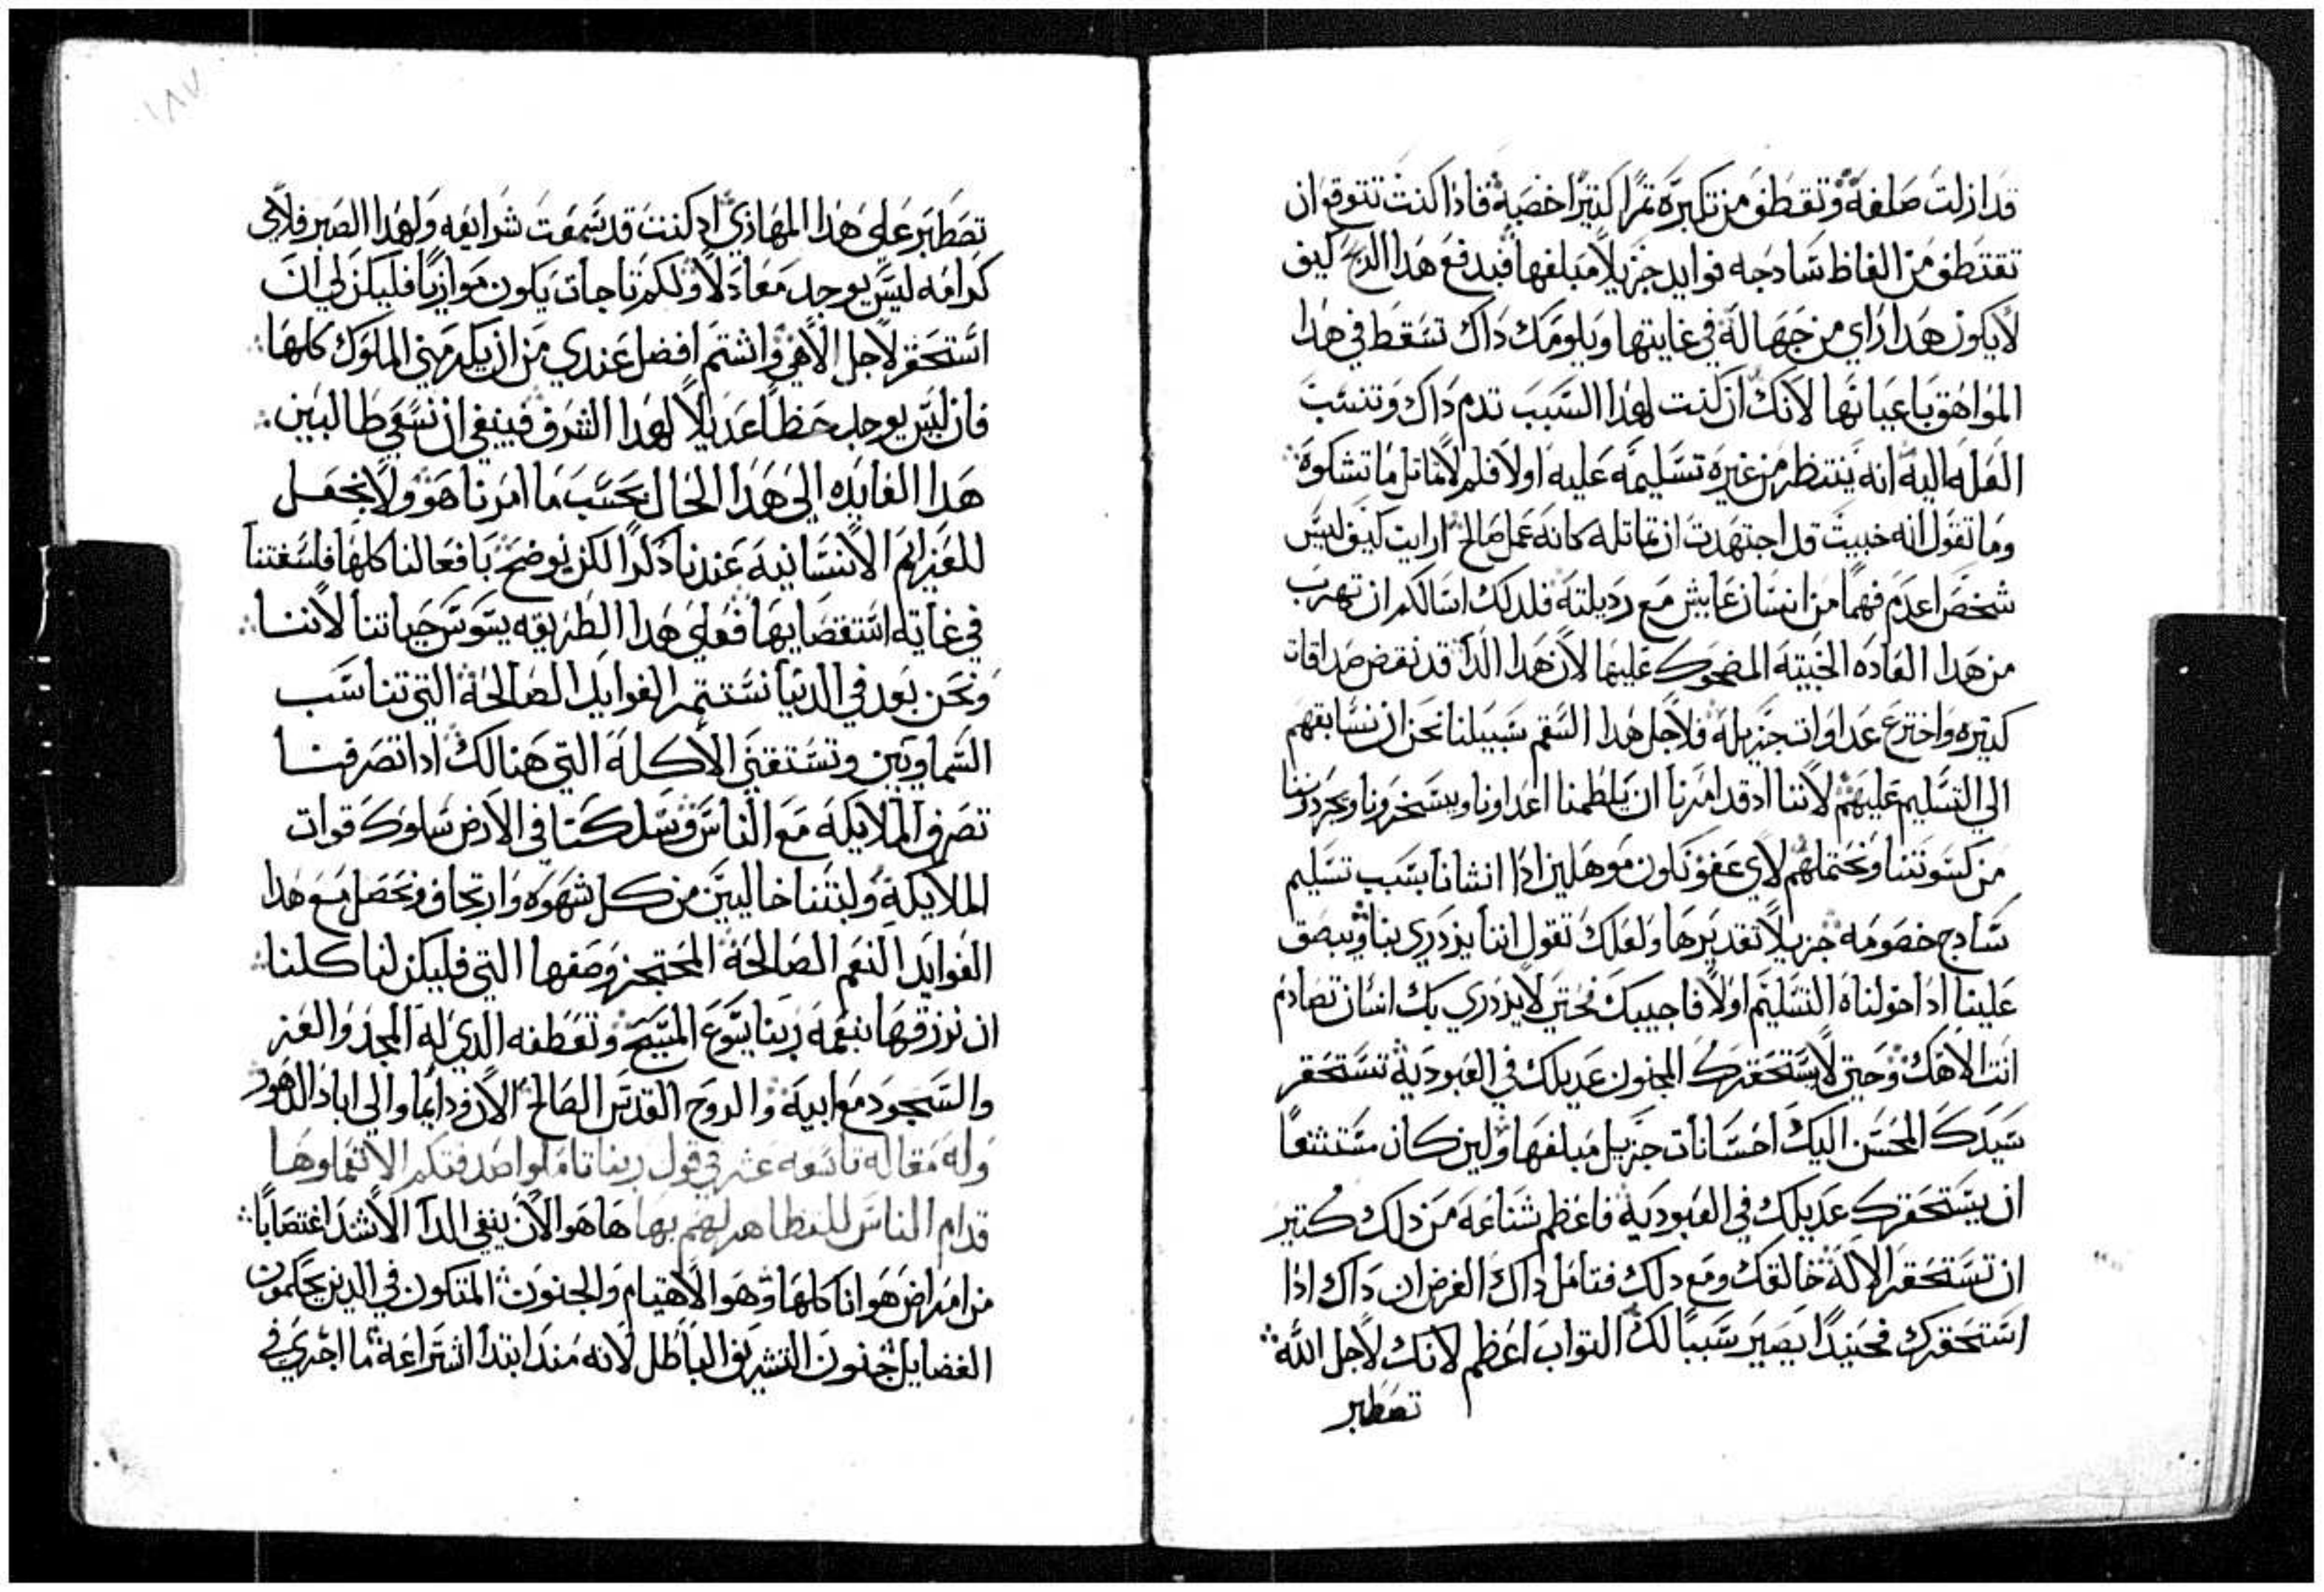 قد ازلت صلفه وتقطف من تكبره ثمرا كتيرا خصبه فاذا كنت تتوقع ان
تقتطف من الفاظ سادجه فوايد جزيلا مبلغها فبدفع هدا الربح كيف
لايكون هدا راي من جهاله في غايتها ويلومك داك تسقط في هدا
المواهق باعيانها لانك ان كنت لهدا السبب تدم داك وتنسب
العله اليه انه ينتظر من غيره تسليمه عليه اولا فلم لاتماتل ما تشكوه
وما تقول انه خبيت قد اجتهدت ان تماتله كانه عمل صالح ارايت كيف ليس
شخص اعدم فهما من انسان عايش مع رديلته فلدلك اسالكم ان تهرب
من هدا العاده الخبيته المضحوك عليها لان هدا الدا قد نقض صداقات
كتيره واخترع عداوات جزيله فلاجل هدا السقم سبيلنا نحن ان نسابقهم
الي التسليم عليهم لاننا اد قد امرنا ان يلطمنا اعداونا ويسخرونا ويجردوننا
من كسوتنا ونحتملهم لاي عفو نكون موهلين ادا انشانا بسبب تسليم
سادج خصومه جزيلا تقديرها ولعلك تقول اننا يزدري بنا ويبصق
علينا ادا خولناه التسليم اولا فاجيبك نحتي لايزدري بك انسان تصادم
انت الاهك وحتي لايستحقرك المجنون عديلك في العبوديه تستحقر
سيدك المحسن اليك احسانات جزيل مبلغها ولين كان مستشنعا
ان يستحقرك عديلك في العبوديه فاعظم شناعه من دلك كتير
ان تستحقر الاله خالقك ومع دلك فتامل داك الغرض ان داك ادا
استحقرك فحينيدا يصير سببا لك التواب اعظم لانك لاجل الله
تصطبر
١٨٧
تصطبر علي هدا المهاذي اد كنت قد سمعت شرايعه ولهدا الصبر فلاي
كرامه ليس يوجد معادلا ولكم تاجات يكون موازيا فليكن لي ان
استحقر لاجل الاهي واشتم افضل عندي من ان يكرمني الملوك كلها
فان ليس يوجد حظا عديلا لهدا الشرف فينبغي ان نسعي طالبين
هدا الفايده الي هدا الحال بحسب ما امرنا هو ولا نجعل
للعزايم الانسانيه عندنا دكرا لكن نوضح بافعالنا كلها فلسفتنا
في غاية استقصايها فعلي هدا الطريقه يسوس حياتنا لاننا
ونحن بعد في الدنيا نستتمر الفوايد الصالحه التي تناسب
السماويين وتستقني الاكله التي هنالك ادا تصرفنا
تصرف الملايكه مع الناس وسلكنا في الارض سلوك قوات
الملايكه ولبتنا خاليين من كل شهوه وارتجاف ونحصل مع هدا
الفوايد النعم الصالحه المحتجز وصفها التي فليكن لنا كلنا
ان نرزقها بنعمه ربنا يسوع المسيح وتعطفه الدي له المجد والعز
والسجود مع ابيه والروح القدس الصالح الان ودايما والي اباد الدهور
وله مقاله تاسعه عشر في قول ربنا تاملوا صدقتكم الا تعملوها
قدام الناس للتظاهر لهم بها ها هو الان ينفي الدا الاشد اغتصابا
من امراض هوانا كلها وهو الاهتيام والجنون المتكون في الدين يحكمون
الفضايل جنون التشريف الباطل لانه مند ابتدا اشتراعه ما اجري في